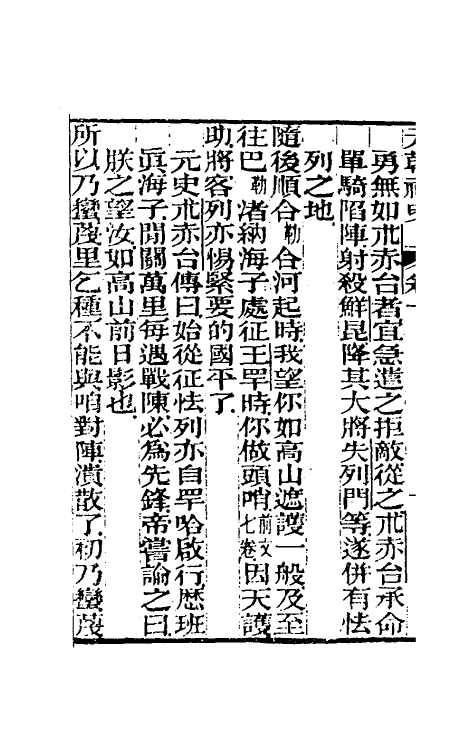 勇無如朮赤台者宜急遣之拒敵從之朮赤台承命
單騎陷陣射殺鮮昆降其大將失列門等遂併有怯
列之地
隨後順合勒合河起時我望你如高山遮護一般及至
往巴勒渚納海子處征王罕時你做頭哨前文七卷因天護
助將客列亦惕緊要的國平了
元史朮赤台傳曰始從征怯列亦自罕哈啟行歷班
眞海子間關萬里每遇戰陳必爲先鋒帝嘗諭之曰
朕之望汝如高山前日影也
所以乃蠻蔑里乞種不能與咱對陣潰散了初乃蠻蔑